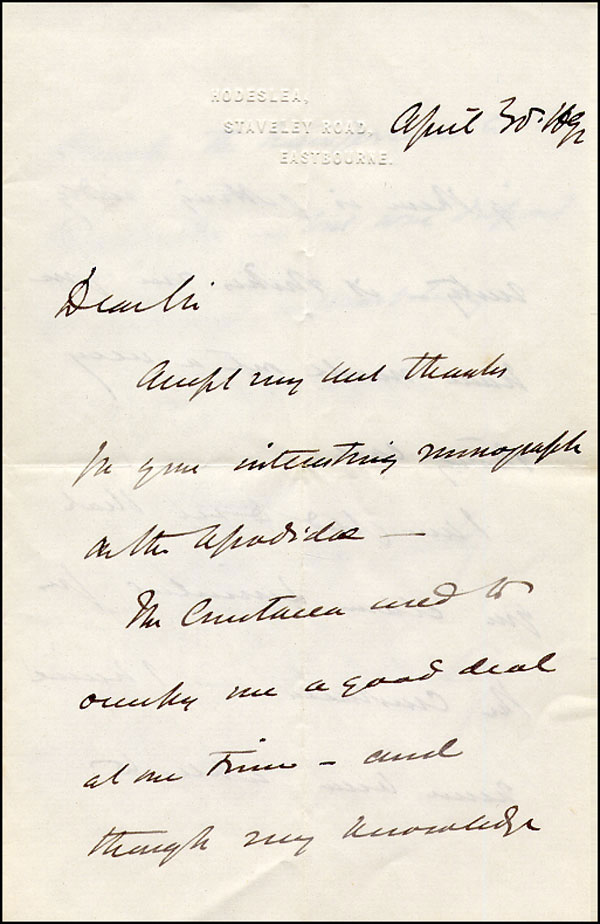 HODESLEA,
STAVELEY ROAD,
EASTBOURNE.
April 30. 1892
Dear Sir
Accept my best thanks
for your interesting monograph
on the Apodidae —
The Crustacea used to
occupy me a good deal
at one time – and
though my knowledge